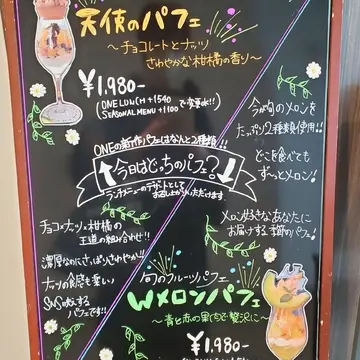 天使のパフェ
～チョコレートとナッツ
さわやかな柑橘の香り～
¥1,980-
(ONE LUNCH +1540
SEASONAL MENU +1100 で変更!!)
ONEの新作パフェはなんと2種類!!
今日はどっちのパフェ?
ランチメニューのデザートとして
お召し上がりいただけます
今が旬のメロンを
たっぷり2種類使用!!
どこを食べても
ずーっとメロン!
メロン好きなあなたに
お届けする季節のパフェ!
チョコ×ナッツ×柑橘の
王道の組み合わせ!!
濃厚なのにさっぱりさわやか!!
ナッツの食感も楽しい
SNS映えする
パフェです!!
旬のフルーツパフェ
Wメロンパフェ
～青と赤の果てまで贅沢に～
¥1,980-